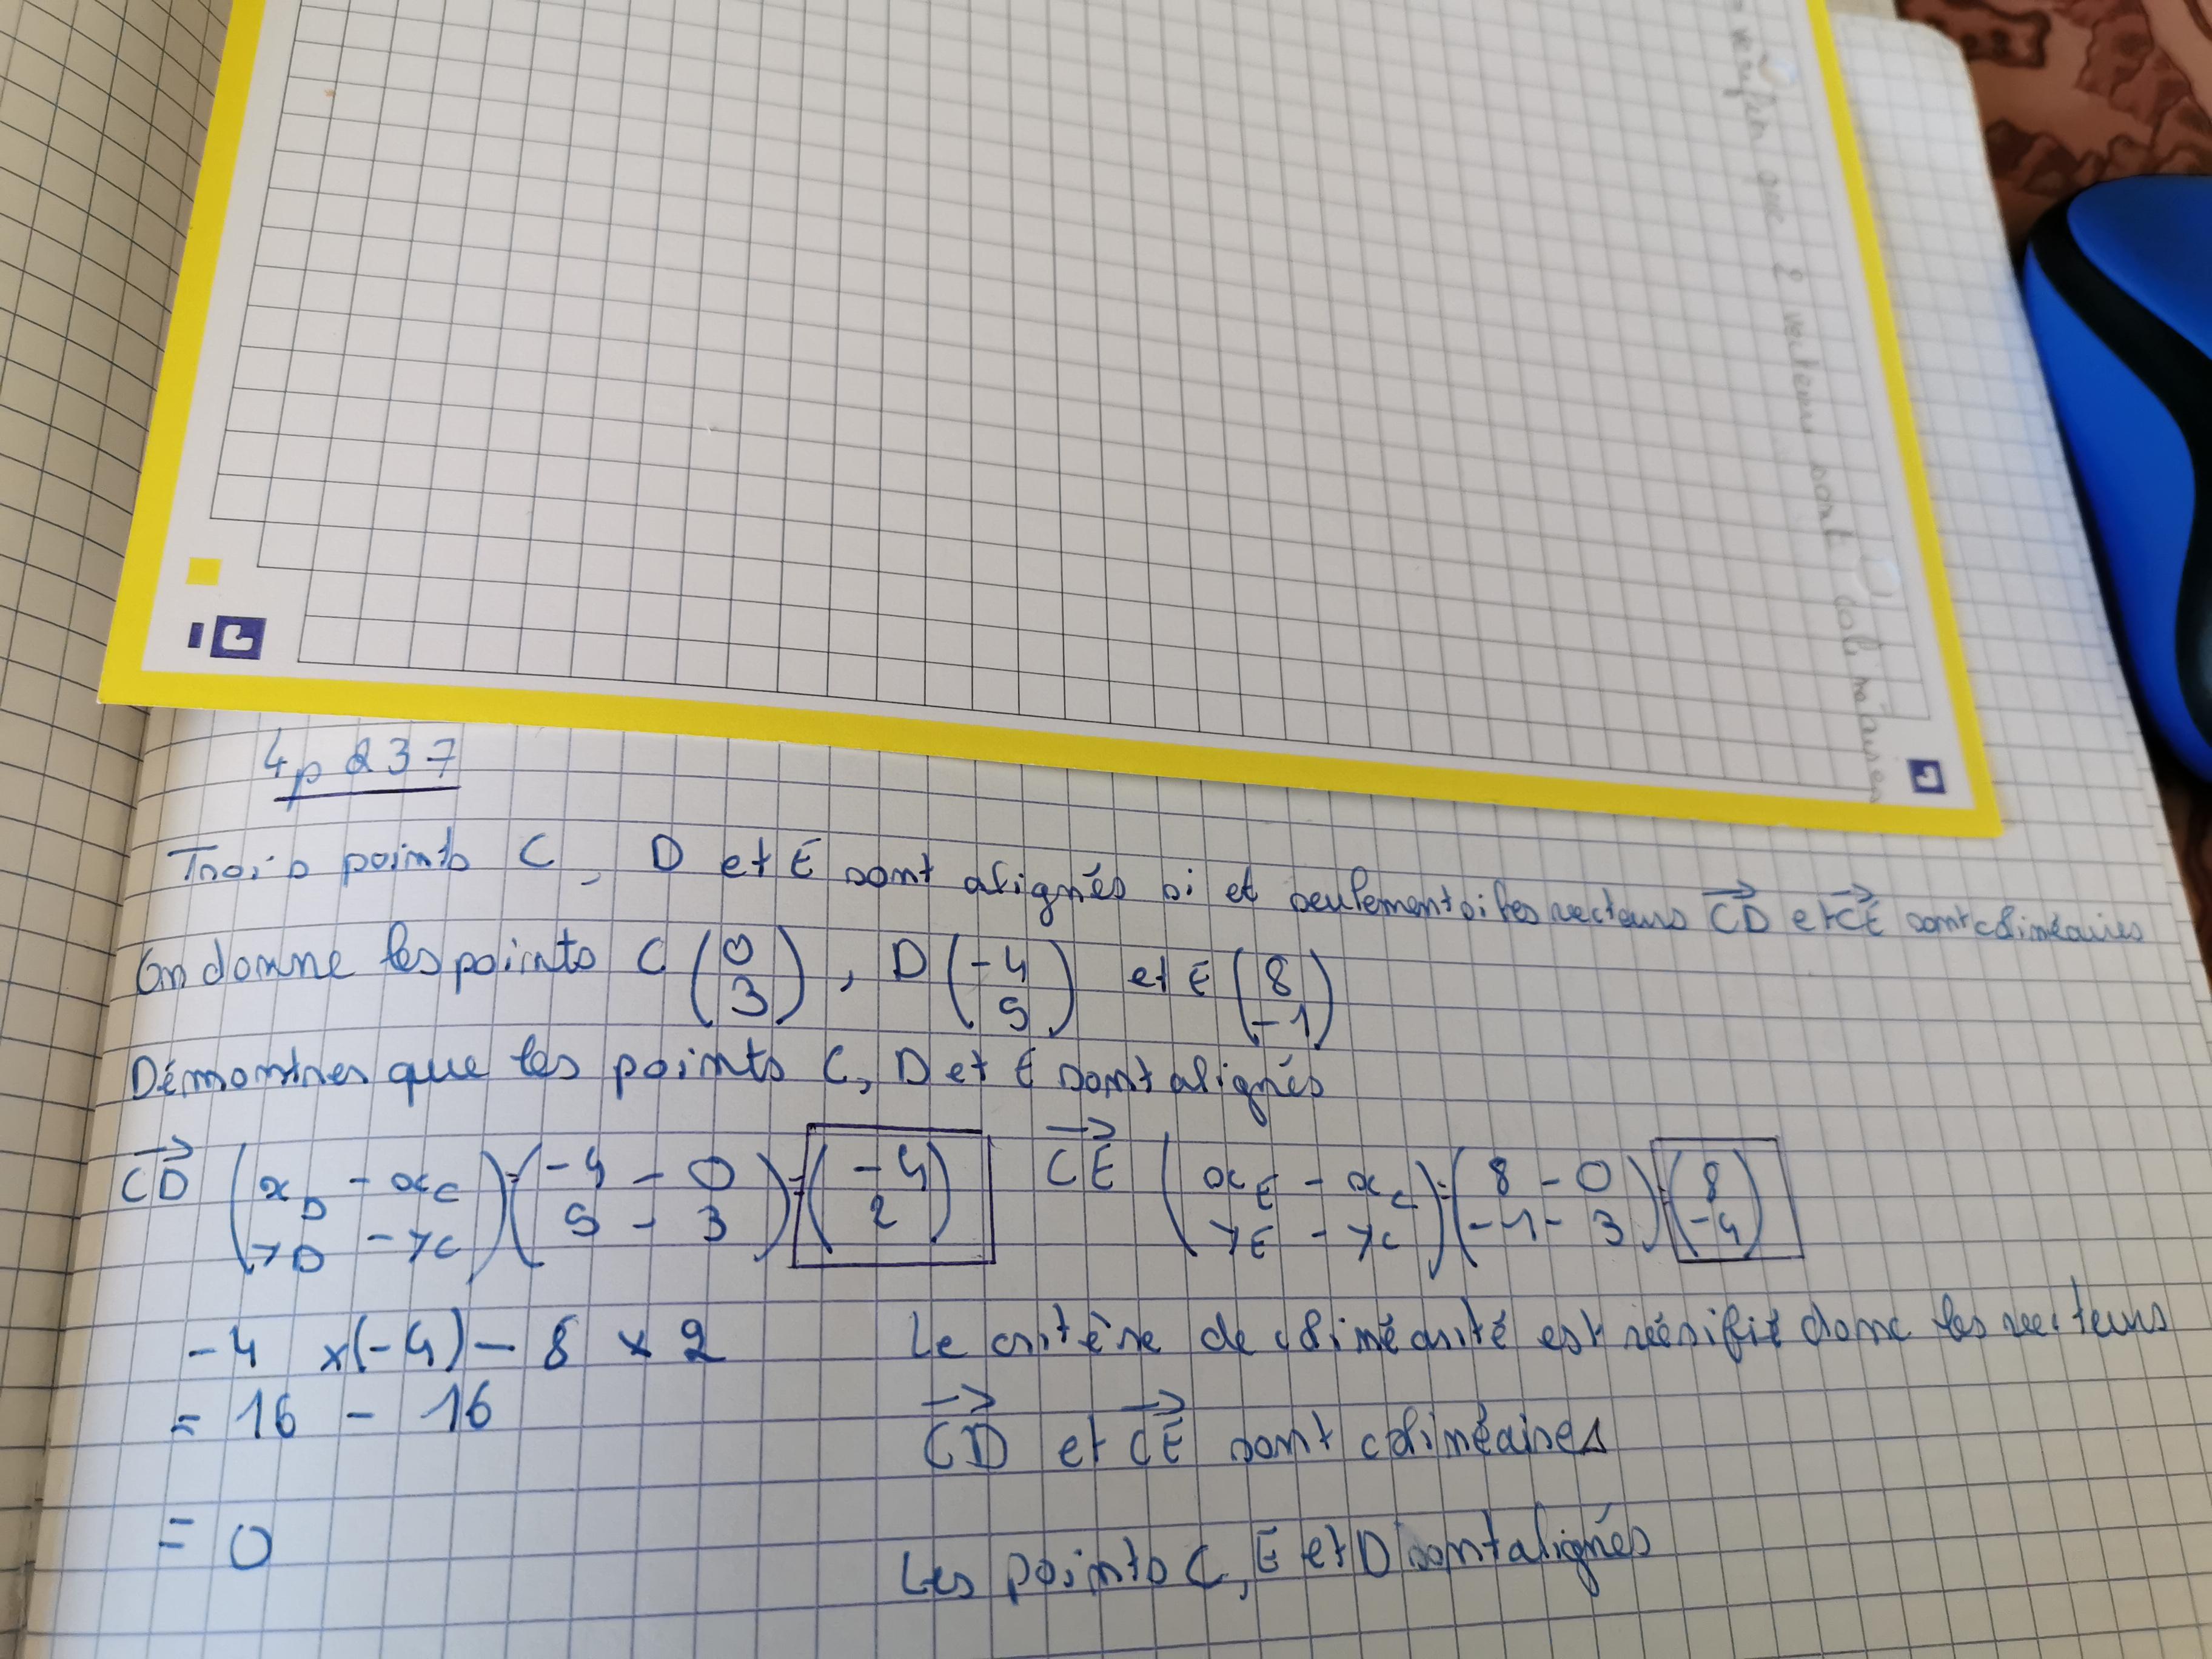 que 2 vecteurs sont colinéaires
4p 237
Trois points C, D et E sont alignés si et seulement si les vecteurs CD et CE sont colinéaires
On donne les points C (0 3), D (-4 5) et E (8 -1)
Démontrer que les points C, D et E sont alignés
CD (xD - xC yD - yC) = (-4 - 0 5 - 3) = (-4 2) CE (xE - xC yE - yC) = (8 - 0 -1 - 3) = (8 -4)
-4 x(-4) - 8 x 2 Le critère de colinéarité est vérifié donc les vecteurs
= 16 - 16 CD et CE sont colinéaires
= 0
Les points C, E et D sont alignés